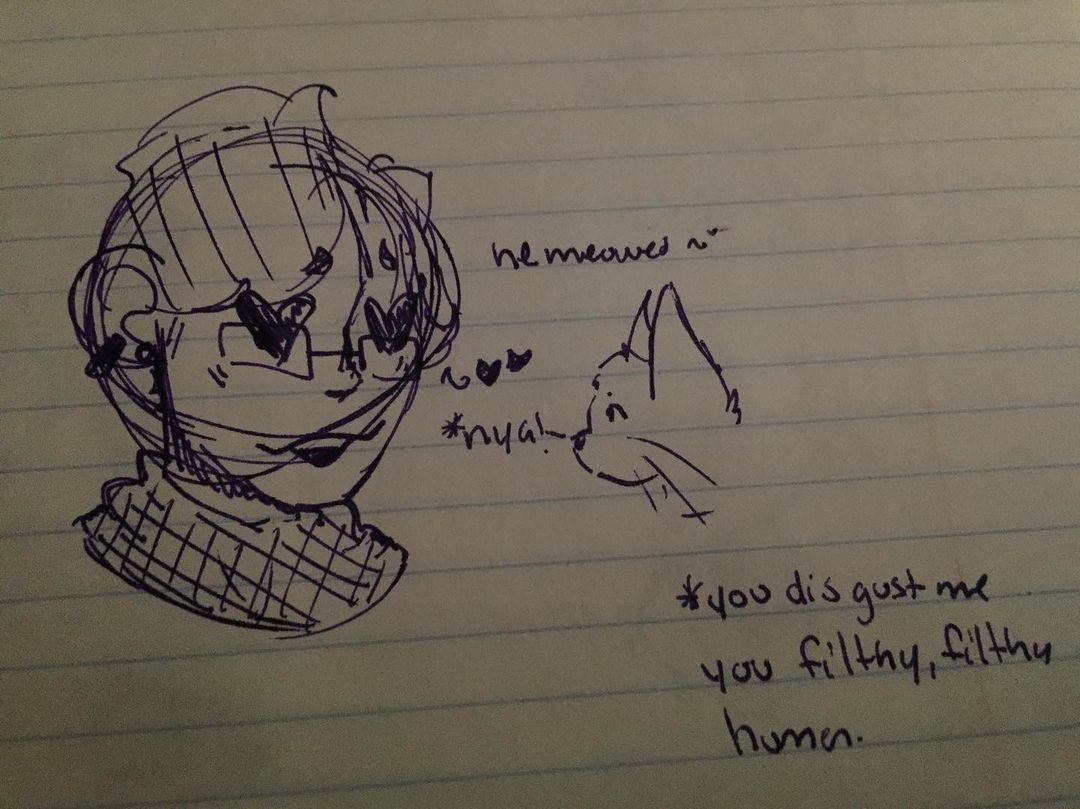 he meowed ~
~♥♥
*nya!
*you disgust me
you filthy, filthy
human.